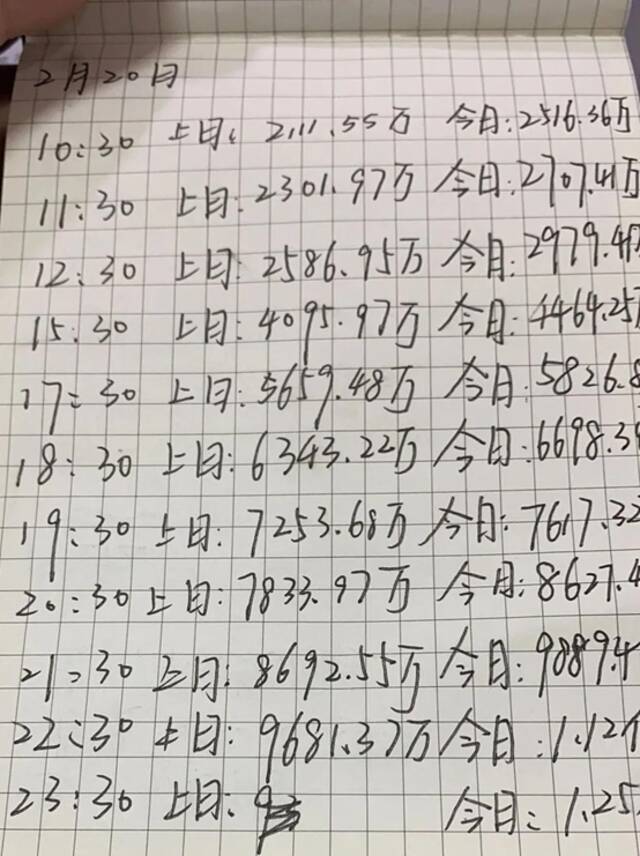 2月20日
10:30 上日: 2111.55万 今日:2516.36万
11:30 上日:2301.97万 今日:2707.41万
12:30 上日:2586.95万 今日:2979.47
15:30 上日:4095.97万 今日:4464.25万
17:30 上日:5659.48万 今日:5826.8
18:30 上日:6343.22万 今日:6698.38
19:30 上日:7253.68万 今日:7617.32
20:30 上日:7833.97万 今日:8627.4
21:30 上日:8692.55万 今日:9889.4
22:30 上日:9681.37万 今日:1.12亿
23:30 上日: 今日:1.25